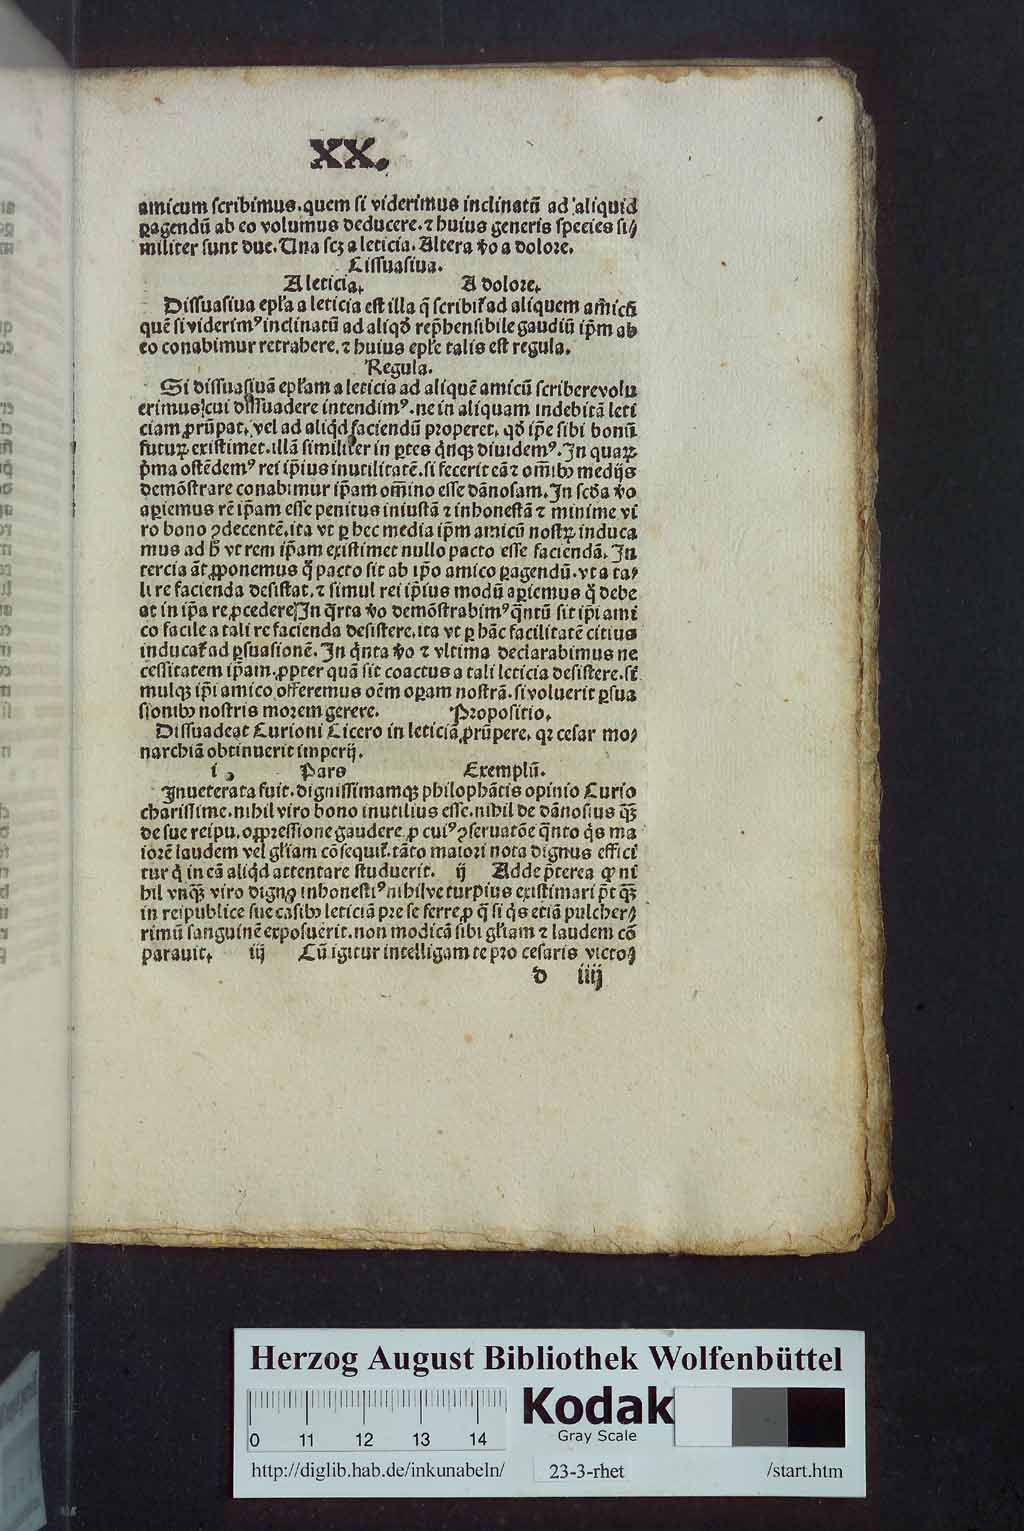 XX.
amicum scribimus.quem si viderimus inclinatū ad aliquid
ꝑagendū ab eo volumus deducere.⁊ huius generis species si⸗
militer sunt due. Una scꝫ a leticia. Altera v̆o a dolore.
Dissuasiua.
A leticia. A dolore.
Dissuasiua epl̄a a leticia est illa q̄ scribit᷑ ad aliquem amicū
quē si viderimꝰ inclinatū ad aliqđ rep̄hensibile gaudiū ip̄m ab
eo conabimur retrahere.⁊ huius epl̄e talis est regula.
Regula.
Si dissuasiuā epl̄am a leticia ad aliquē amicū scribere volu
erimus/cui dissuadere intendimꝰ.ne in aliquam indebitā leti
ciam ꝓrūpat, vel ad aliqd̉ faciendū properet, qđ ip̄e sibi bonū
futuꝝ existimet.illā similiter in ꝑtes qnqꝫ diuidemꝰ. In quaꝝ
p̄ma ostēdemꝰ rei ip̄ius inutilitatē.si fecerit eā ⁊ om̄ibꝰ medijs
demōstrare conabimur ip̄am om̄ino esse dānosam. In scđa v̆o
aꝑiemus rē ip̄am esse penitus iniustā ⁊ inhonestā ⁊ minime vi
ro bono ꝯdecentē.ita vt ꝑ hec media ip̄m amicū nostꝝ induca
mus ad h̄ vt rem ip̄am existimet nullo pacto esse faciendā. In
tercia āt ꝓponemus q̊ pacto sit ab ip̄o amico ꝑagendū.vt a ta⸗
li re facienda desistat.⁊ simul rei ip̄ius modū aꝑiemus q̊ debe
at in ip̄a re ꝓcedere/In q̄rta v̆o demōstrabimꝰ q̄ntū sit ip̄i ami
co facile a tali re facienda desistere.ita vt ꝑ hāc facilitatē citius
inducat᷑ ad ꝑsuasionē. In qnta v̆o ⁊ vltima declarabimus ne
cessitatem ip̄am.ꝓpter quā sit coactus a tali leticia desistere.si
mulqꝫ ip̄i amico offeremus oēm oꝑam nostrā.si voluerit ꝑsua
sionibꝰ nostris morem gerere. Propositio.
Dissuadeat Curioni Cicero in leticiā ꝓrūpere. qꝛ cesar mo⸗
narchiā obtinuerit imperij.
i. Pars Exemplū.
Inueterata fuit.dignissimamqꝫ philophātis opinio Curio
charissime.nihil viro bono inutilius esse.nihil de dānosius qꝫ̄
de sue reipu.oppressione gaudere ꝓ cuiꝰ ꝯseruatōe q̄nto qs ma
iorē laudem vel gl̄iam cōsequit᷑.tāto maiori nota dignus effici
tur q in eā aliqd̉ attentare studuerit. ij Adde p̄terea ꝙ ni
hil vnqꝫ̄ viro digno inhonestiꝰ nihilve turpius existimari p̄t qꝫ̄
in reipublice sue casibꝰ leticiā pre se ferre ꝓ q̄ si qs etiā pulcher⸗
rimū sanguinē exposuerit.non modicā sibi gl̄iam ⁊ laudem cō
parauit. iij Cū igitur intelligam te pro cesaris victo⸗
d iiij
Herzog August Bibliothek Wolfenbüttel
0 11 12 13 14
Kodak
Gray Scale
http://diglib.hab.de/inkunabeln/ 23-3-rhet /start.htm